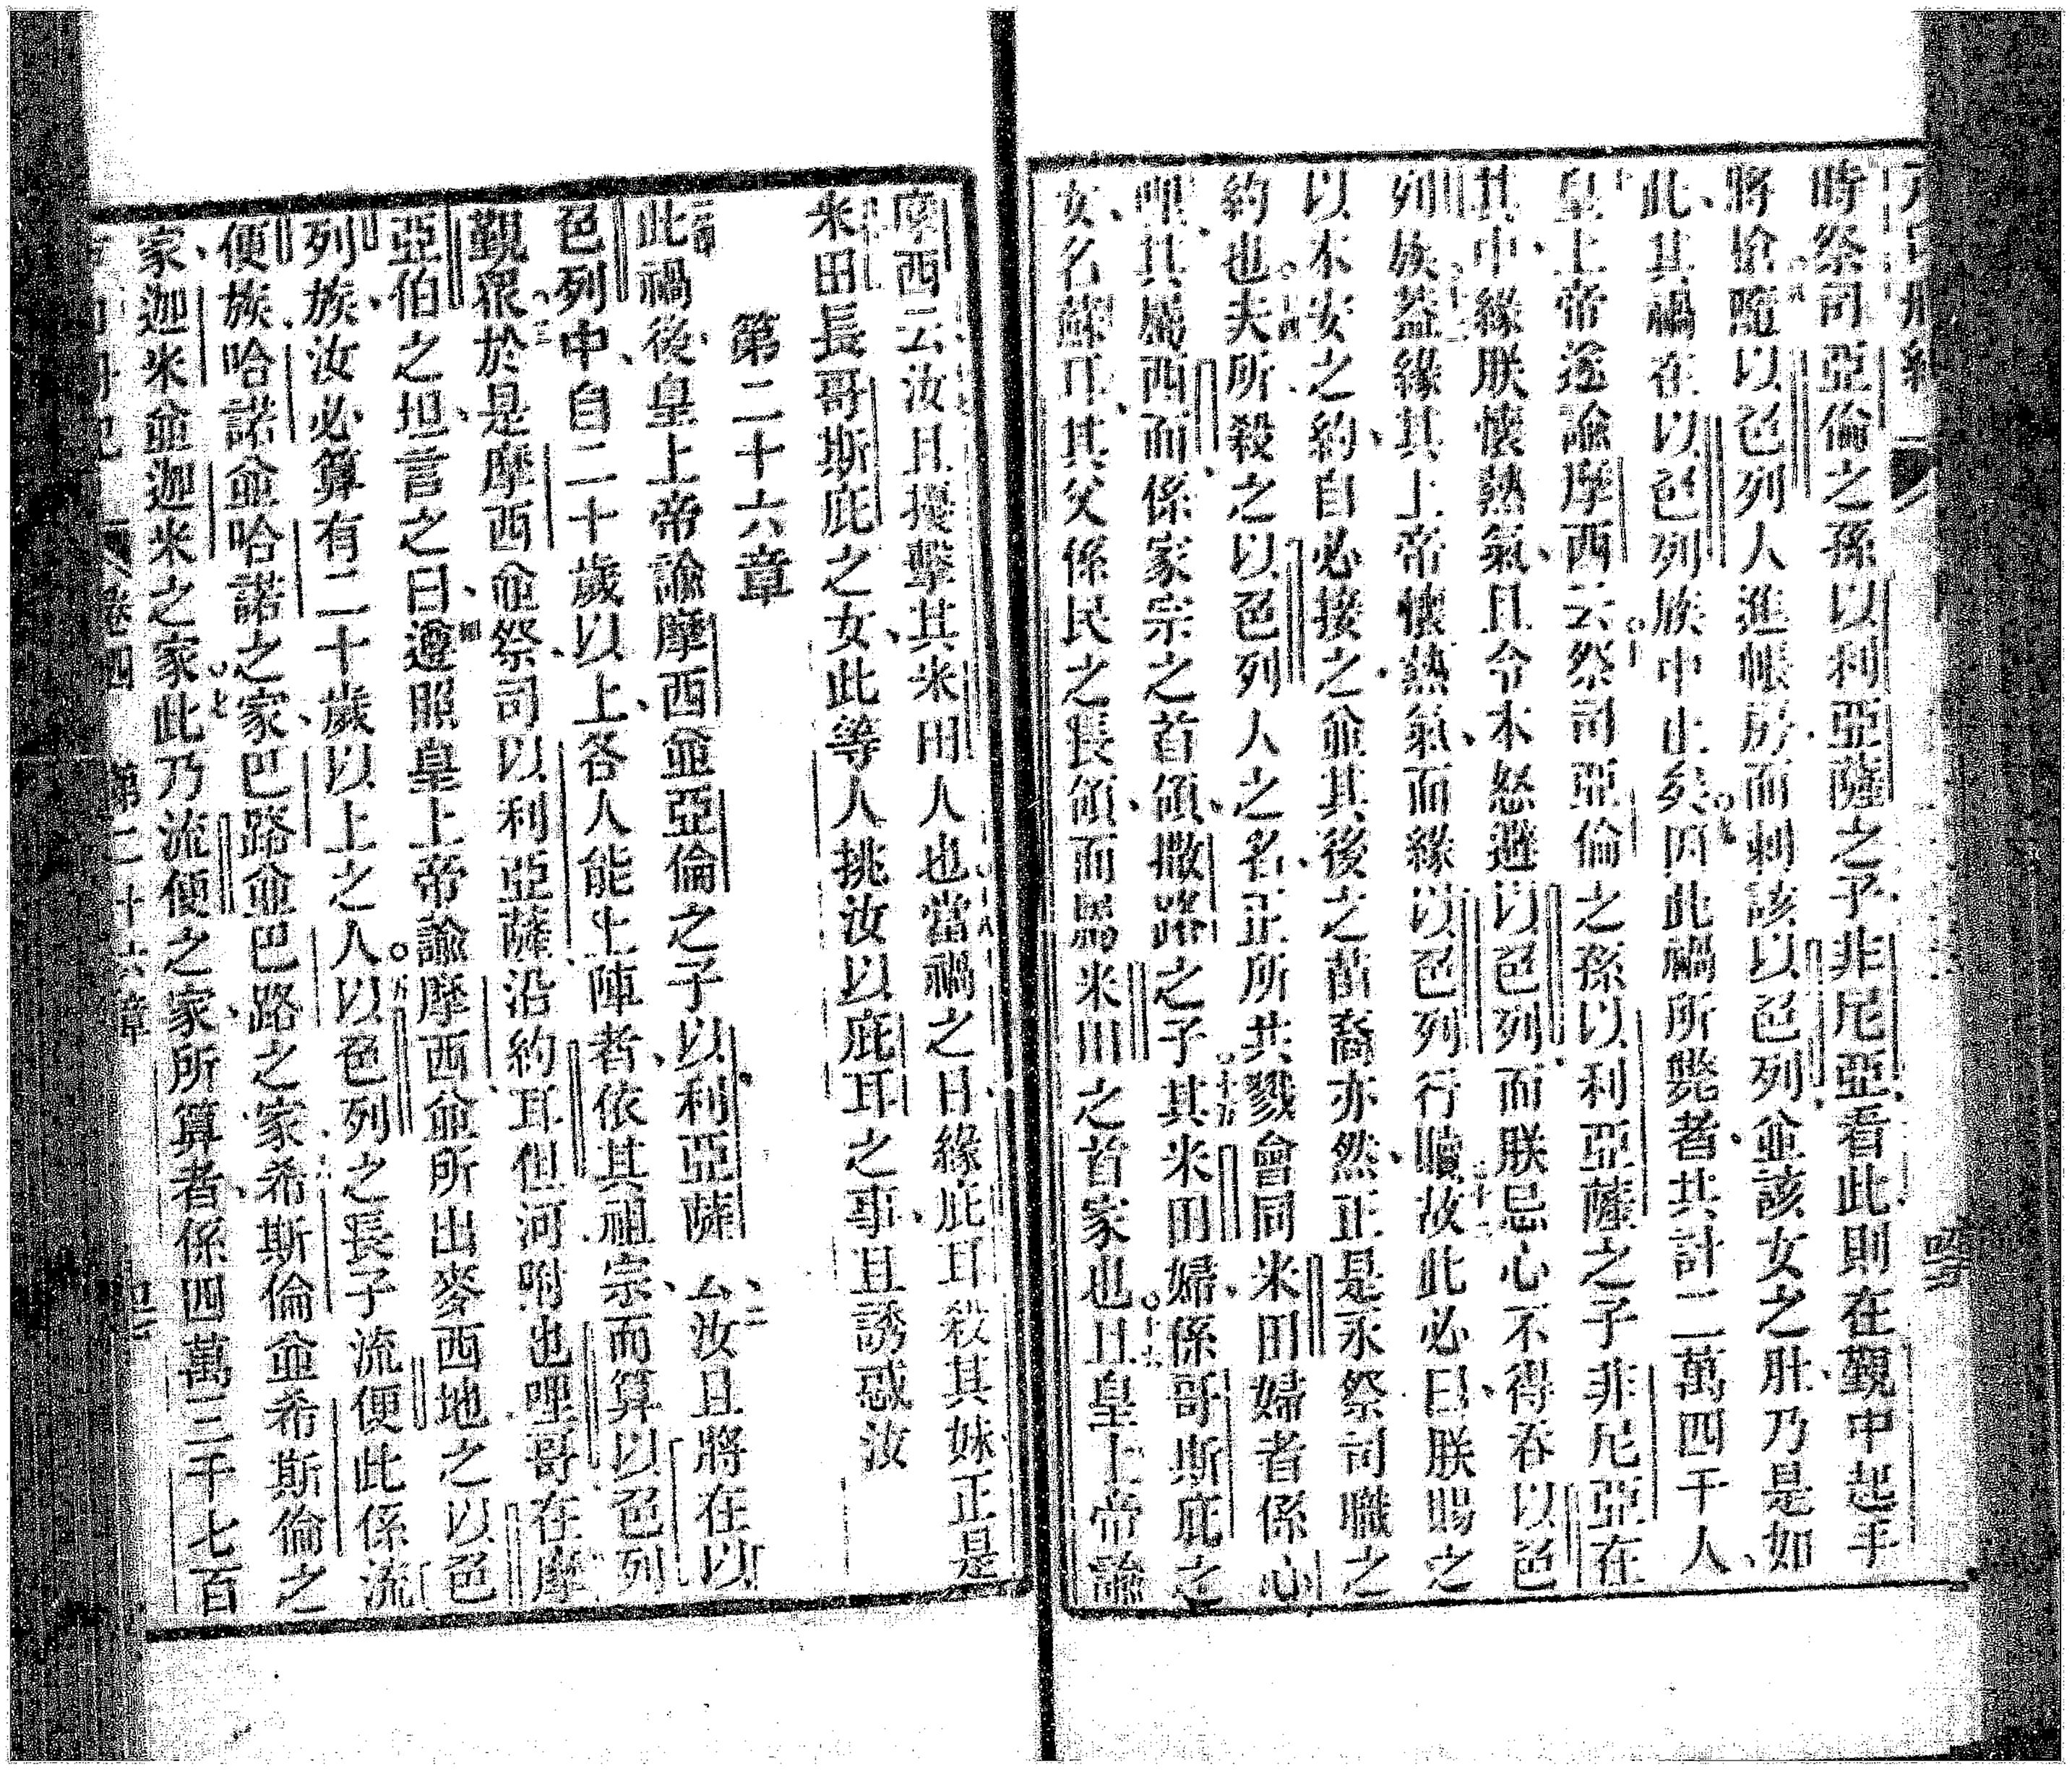 時祭司亞倫之孫以利亞薩之子非尼亞看此則在覲中起手
將鎗隨以色列人進帳房而刺該以色列並該女之肚乃是如
此其禍在以色列族中止矣因此禍所斃者共計二萬四千人
皇上帝遂諭摩西云祭司亞倫之孫以利亞薩之子非尼亞在
其中緣朕懷熱氣且令本怒避以色列而朕忌心不得吞以色
列族蓋緣其上帝懷熱氣而緣以色列行贖故此必曰朕賜之
以本安之約自必接之並其後之苗裔亦然正是永祭司職之
約也夫所殺之以色列人之名正所共戮會同米田婦者係心
哩其屬西而係家宗之首領撒路之子其米田婦係哥斯庇之
女名蘇耳其父係民之長領而為米田之首家也且皇上帝諭
摩西云汝且擾擊其米田人也當禍之日緣庇耳殺其妹正是
米田長哥斯庇之女此等人挑汝以庇耳之事且誘惑汝
第二十六章
此禍後皇上帝諭摩西並亞倫之子以利亞薩云汝且將在以
色列中自二十歲以上各人能上陣者依其祖宗而算以色列
覲眾於是摩西並祭司以利亞薩沿約耳但河附也哩哥在摩
亞伯之坦言之曰遵照皇上帝諭摩西並所出麥西地之以色
列族汝必算有二十歲以上之人以色列之長子流便此係流
便族哈諾並哈諾之家巴路並巴路之家希斯倫並希斯倫之
家迦米並迦米之家此乃流便之家所算者係四萬三千七百
卷四 第二十六章